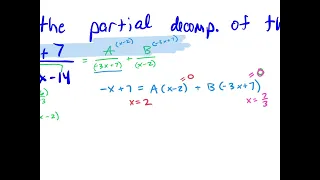 the partial decomp. of th
+ 7 = A (x-2) + B (-3x+7)
x - 14 (-3x+7) (x-2)
=0 =0
-x + 7 = A (x-2) + B (-3x+7)
x = 2 x = 7/3